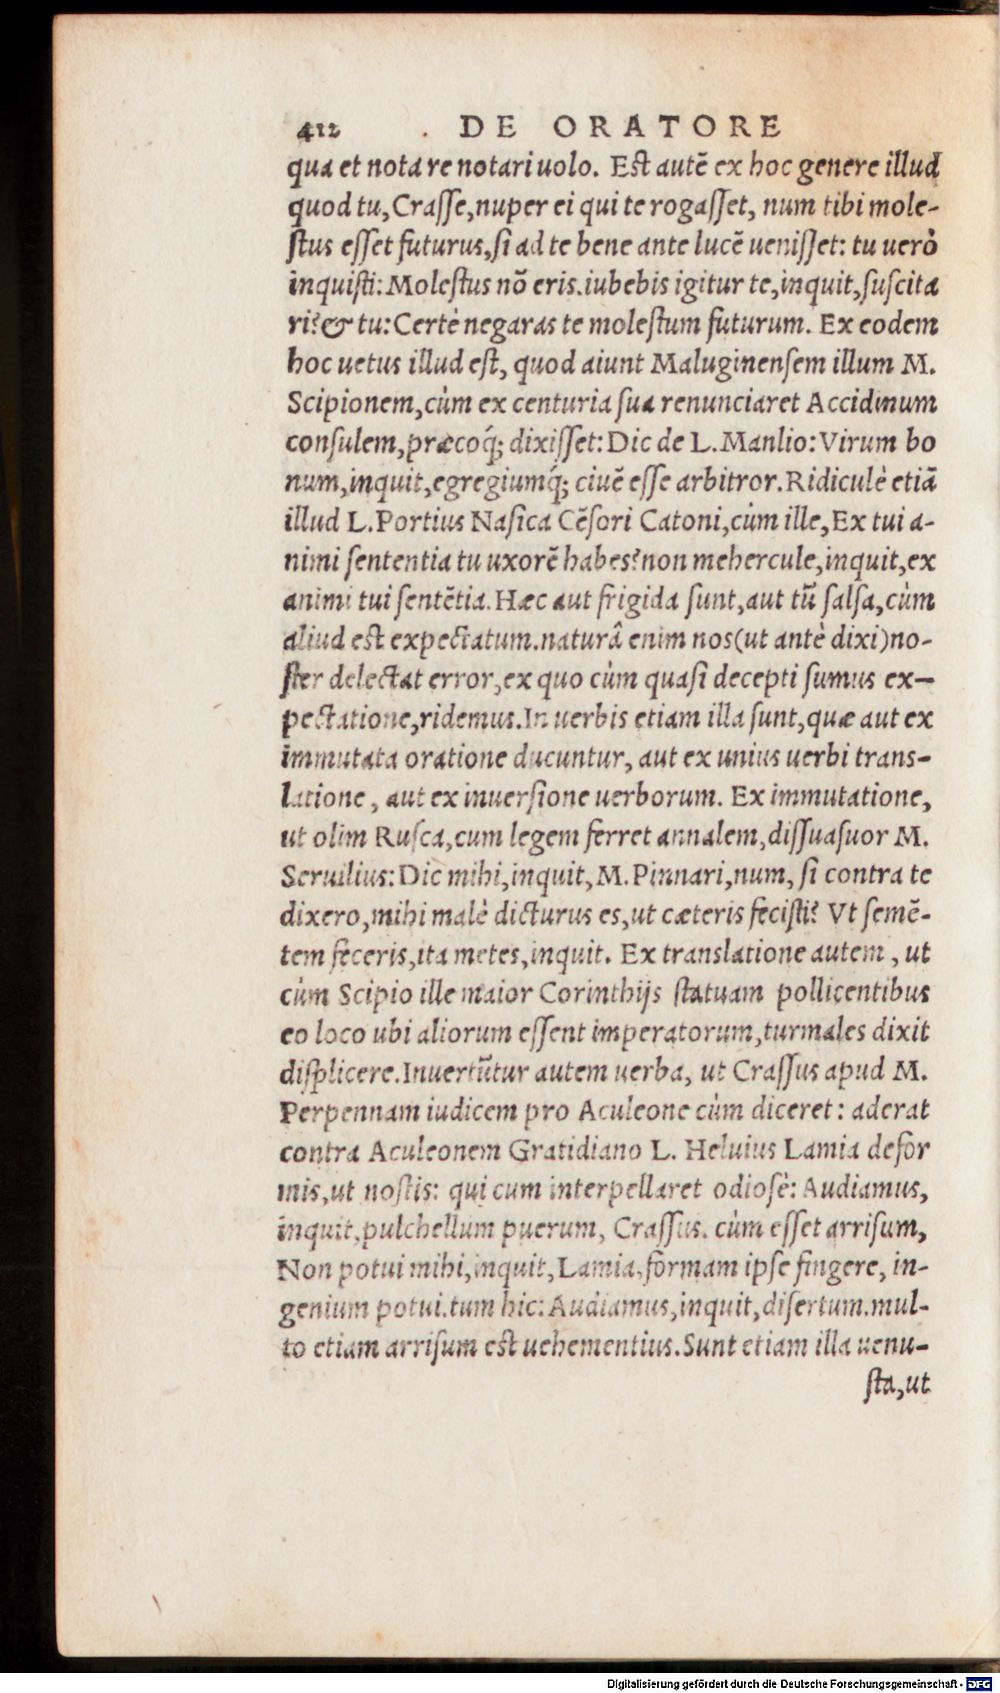 412 DE ORATORE
qua et notare notari uolo. Est autē ex hoc genere illud
quod tu, Crasse, nuper ei qui te rogasset, num tibi mole-
stus esset futurus, si ad te bene ante lucē uenisset: tu uerò
inquisti: Molestus nō eris. iubebis igitur te, inquit, suscita
ri? & tu: Certè negaras te molestum futurum. Ex eodem
hoc uetus illud est, quod aiunt Maluginensem illum M.
Scipionem, cùm ex centuria sua renunciaret Accidinum
consulem, præcoq́; dixisset: Dic de L. Manlio: Virum bo
num, inquit, egregiumq́; ciuē esse arbitror. Ridiculè etiā
illud L. Portius Nasica Cēsori Catoni, cùm ille, Ex tui a-
nimi sententia tu uxorē habes? non mehercule, inquit, ex
animi tui sentētia. Hæc aut frigida sunt, aut tū salsa, cùm
aliud est expectatum. naturâ enim nos (ut antè dixi) no-
ster delectat error, ex quo cùm quasi decepti sumus ex-
pectatione, ridemus. In uerbis etiam illa sunt, quæ aut ex
immutata oratione ducuntur, aut ex unius uerbi trans-
latione, aut ex inuersione uerborum. Ex immutatione,
ut olim Rusca, cum legem ferret annalem, dissuasuor M.
Seruilius: Dic mihi, inquit, M. Pinnari, num, si contra te
dixero, mihi malè dicturus es, ut cæteris fecisti? Vt semē-
tem feceris, ita metes, inquit. Ex translatione autem, ut
cùm Scipio ille maior Corinthijs statuam pollicentibus
eo loco ubi aliorum essent imperatorum, turmales dixit
displicere. Inuertūtur autem uerba, ut Crassus apud M.
Perpennam iudicem pro Aculeone cùm diceret: aderat
contra Aculeonem Gratidiano L. Heluius Lamia defor
mis, ut nostis: qui cum interpellaret odiosè: Audiamus,
inquit, pulchellum puerum, Crassus. cùm esset arrisum,
Non potui mihi, inquit, Lamia, formam ipse fingere, in-
genium potui. tum hic: Audiamus, inquit, disertum. mul-
to etiam arrisum est uehementius. Sunt etiam illa uenu-
sta, ut
Digitalisierung gefördert durch die Deutsche Forschungsgemeinschaft - DFG